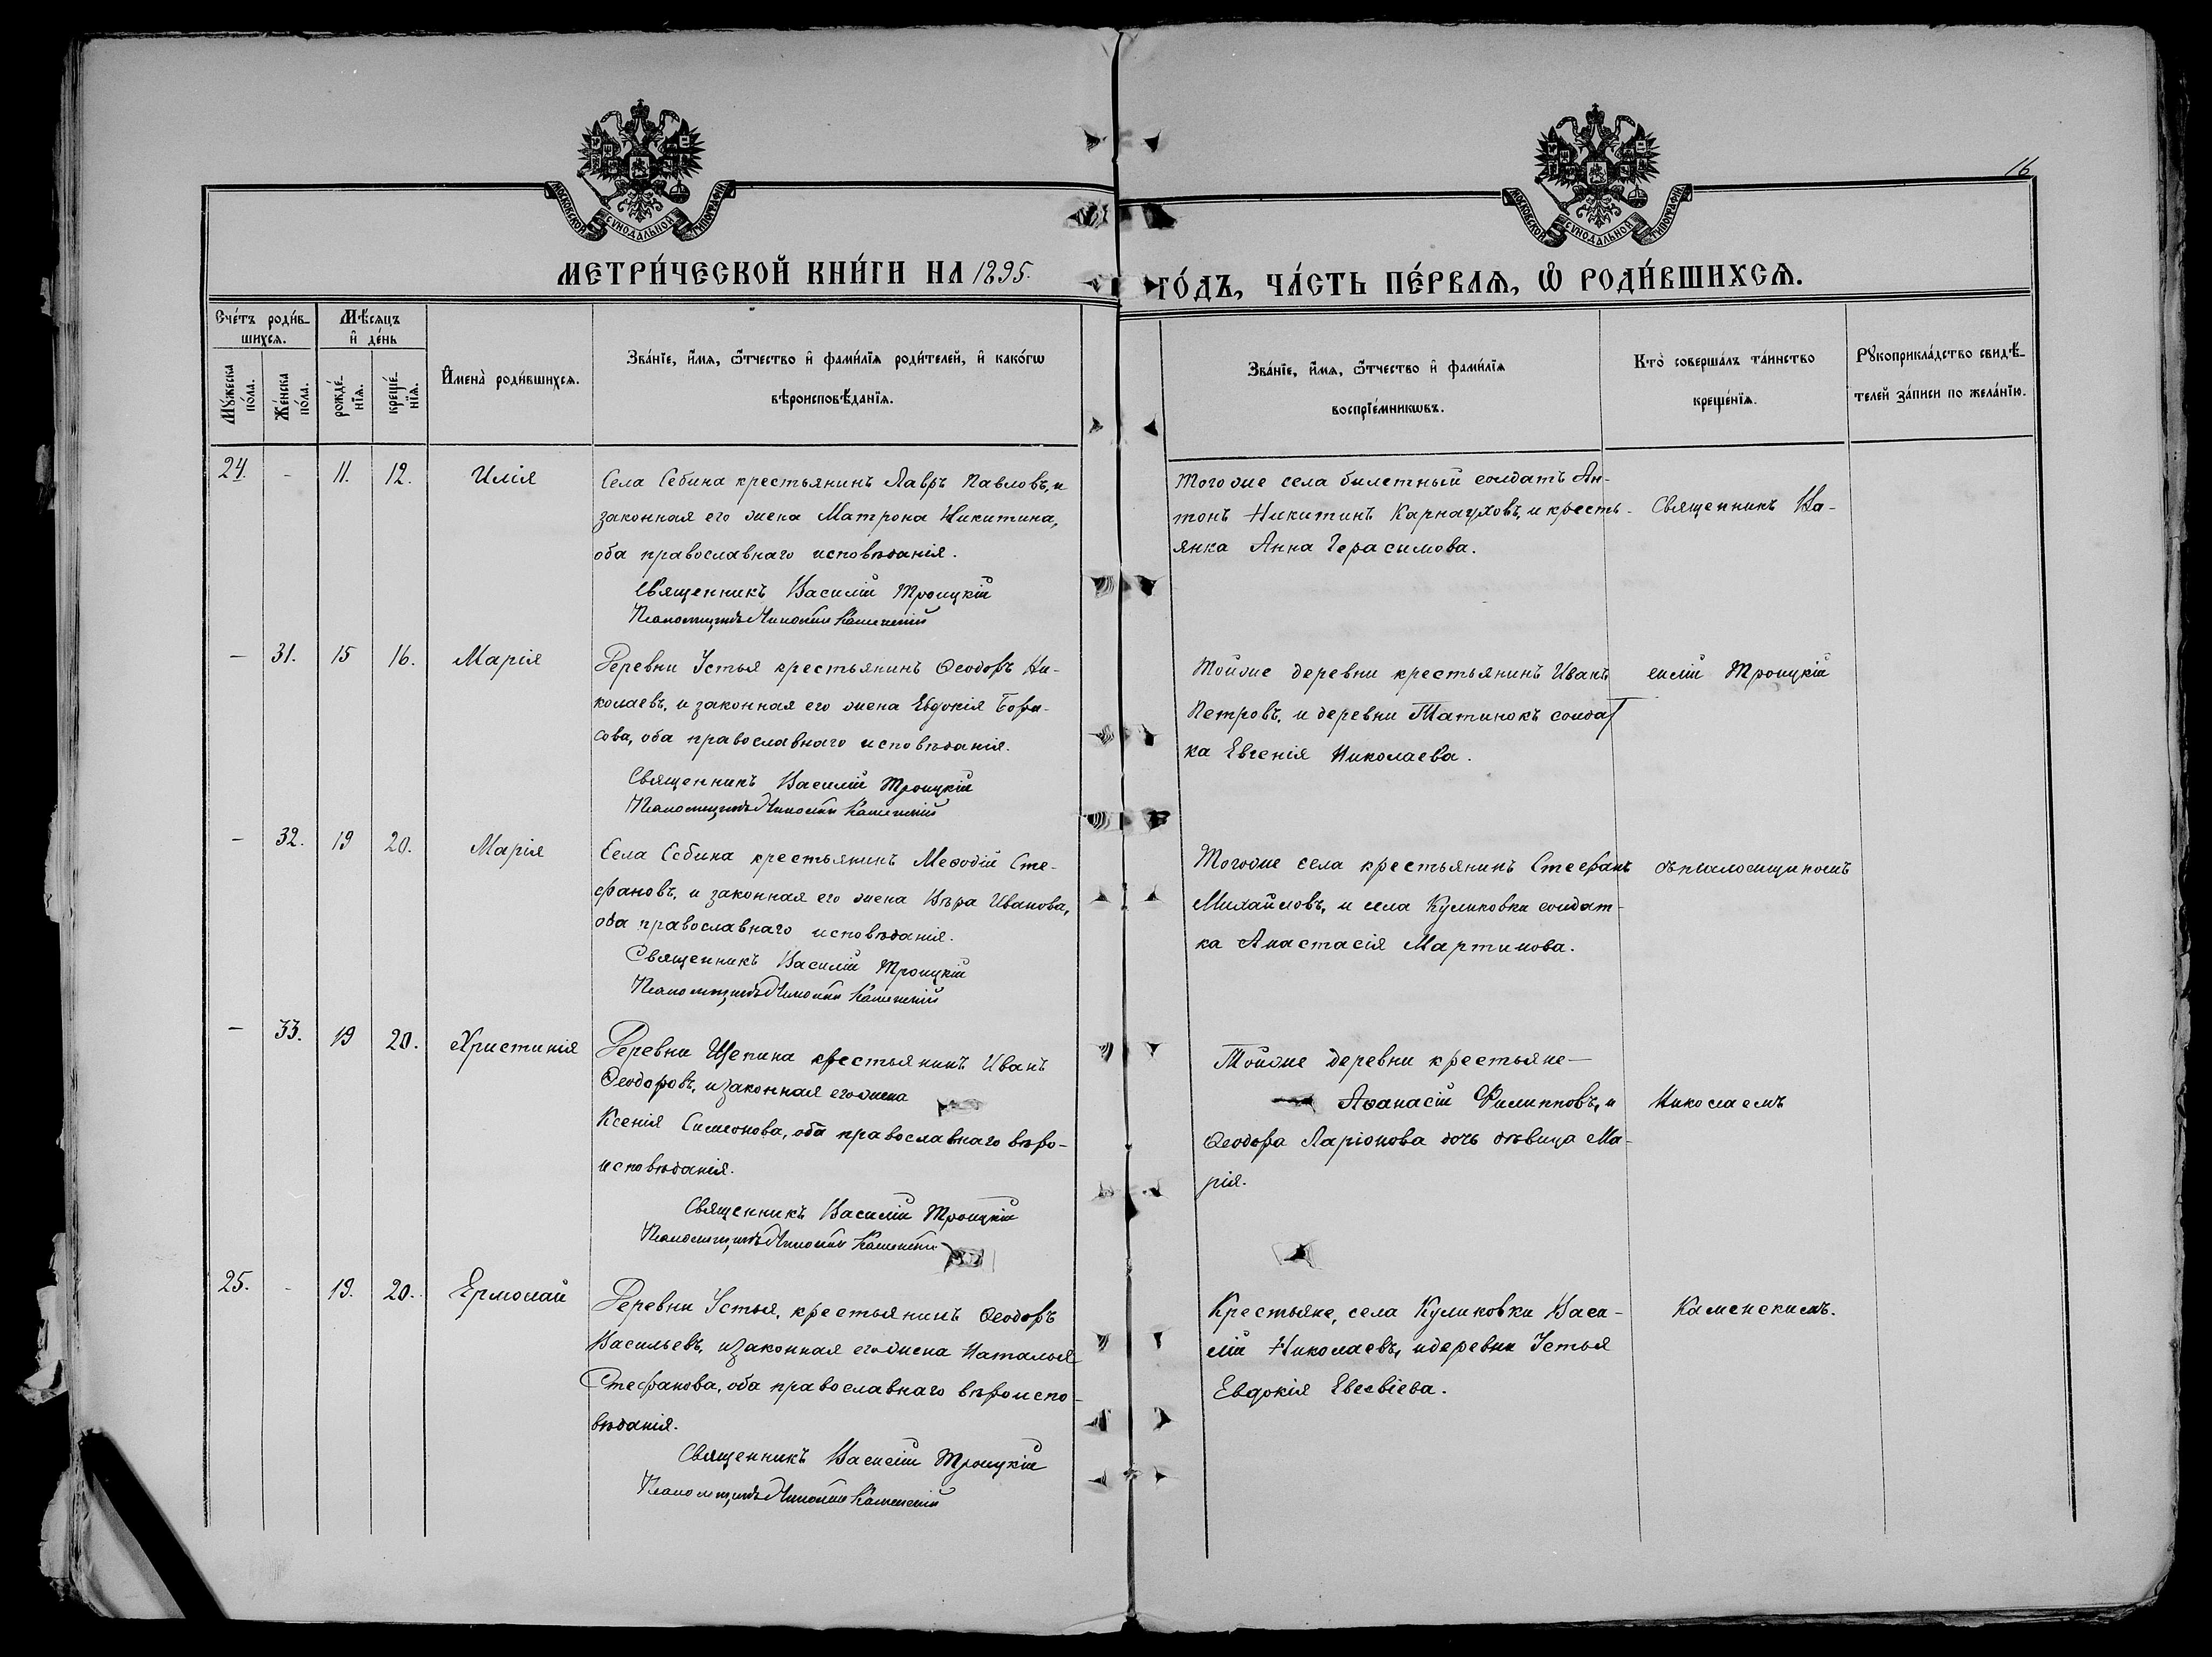 16
МОСКОВСКОЙ СѴНОДАЛЬНОЙ ТИПОГРАФІИ
МОСКОВСКОЙ СѴНОДАЛЬНОЙ ТИПОГРАФІИ
МЕТРИ́ЧЕСКОЙ КНИ́ГИ НА 1895.
ГО́ДЪ, ЧА́СТЬ ПЕ́РВАѦ, Ѡ РОДИ́ВШИХСѦ.
Сче́тъ роди́в-
шихся.
Мѣ́сяцъ
и҆ де́нь
Мꙋ́жеска
по́ла.
Же́нска
по́ла.
рожде́-
нїя.
креще́-
нїя.
И҆мена̀ роди́вшихся.
Зва́нїе, и҆́мя, ѻ҆́тчество и҆ фами́лїя роди́телей, и҆ како́гѡ
вѣроисповѣ́данїя.
Зва́нїе, и҆́мя, ѻ҆́тчество и҆ фами́лїя
воспрїе́мникѡвъ.
Кто̀ соверша́лъ та́инство
креще́нїя.
Рꙋкоприкла́дство свидѣ́-
телей за́писи по жела́нїю.
24. - 11. 12. Илія
Села Себина крестьянинъ Лавръ Павловъ, и
законная его жена Матрона Никитина,
оба православнаго исповѣданія.
Священникъ Василій Троицкій
Псаломщикъ Николай Каменскій
Тогоже села билетный солдатъ Ан-
тонъ Никитинъ Карнауховъ, и кресть-
янка Анна Герасимова.
Священникъ Ва-
— 31. 15 16. Марія
Деревни Устья крестьянинъ Ѳеодоръ Ни-
колаевъ, и законная его жена Евдокія Бори-
сова, оба православнаго исповѣданія.
Священникъ Василій Троицкій
Псаломщикъ Николай Каменскій
Тойже деревни крестьянинъ Иванъ
Петровъ, и деревни Татинокъ солдат
ка Евгенія Николаева.
силій Троицкій
— 32. 19 20. Марія
Села Себина крестьянинъ Меѳодій Сте-
фановъ, и законная его жена Вѣра Иванова,
оба православнаго исповѣданія.
Священникъ Василій Троицкій
Псаломщикъ Николай Каменскій
Тогоже села крестьянинъ Стефанъ
Михайловъ, и села Куликовки солдат-
ка Анастасія Мартинова.
съ псаломщикомъ
— 33. 19 20. Христинія
Деревни Щепина крестьянинъ Иванъ
Ѳеодоровъ, и законная его жена
Ксенія Симеонова, оба православнаго вѣро-
исповѣданія.
Священникъ Василій Троицкій
Псаломщикъ Николай Каменскій
Тойже деревни крестьяне —
Аѳанасій Филипповъ, и
Ѳеодора Ларіонова дочь дѣвица Ма-
рія.
Николаемъ
25. - 19. 20. Ермолай
Деревни Устья, крестьянинъ Ѳеодоръ
Васильевъ, и законная его жена Наталья
Стефанова, оба православнаго вѣроиспо-
вѣданія.
Священникъ Василій Троицкій
Псаломщикъ Николай Каменскій
Крестьяне, села Куликовки Васи-
лій Николаевъ, и деревни Устья
Евдокія Евсевіева.
Каменскимъ.